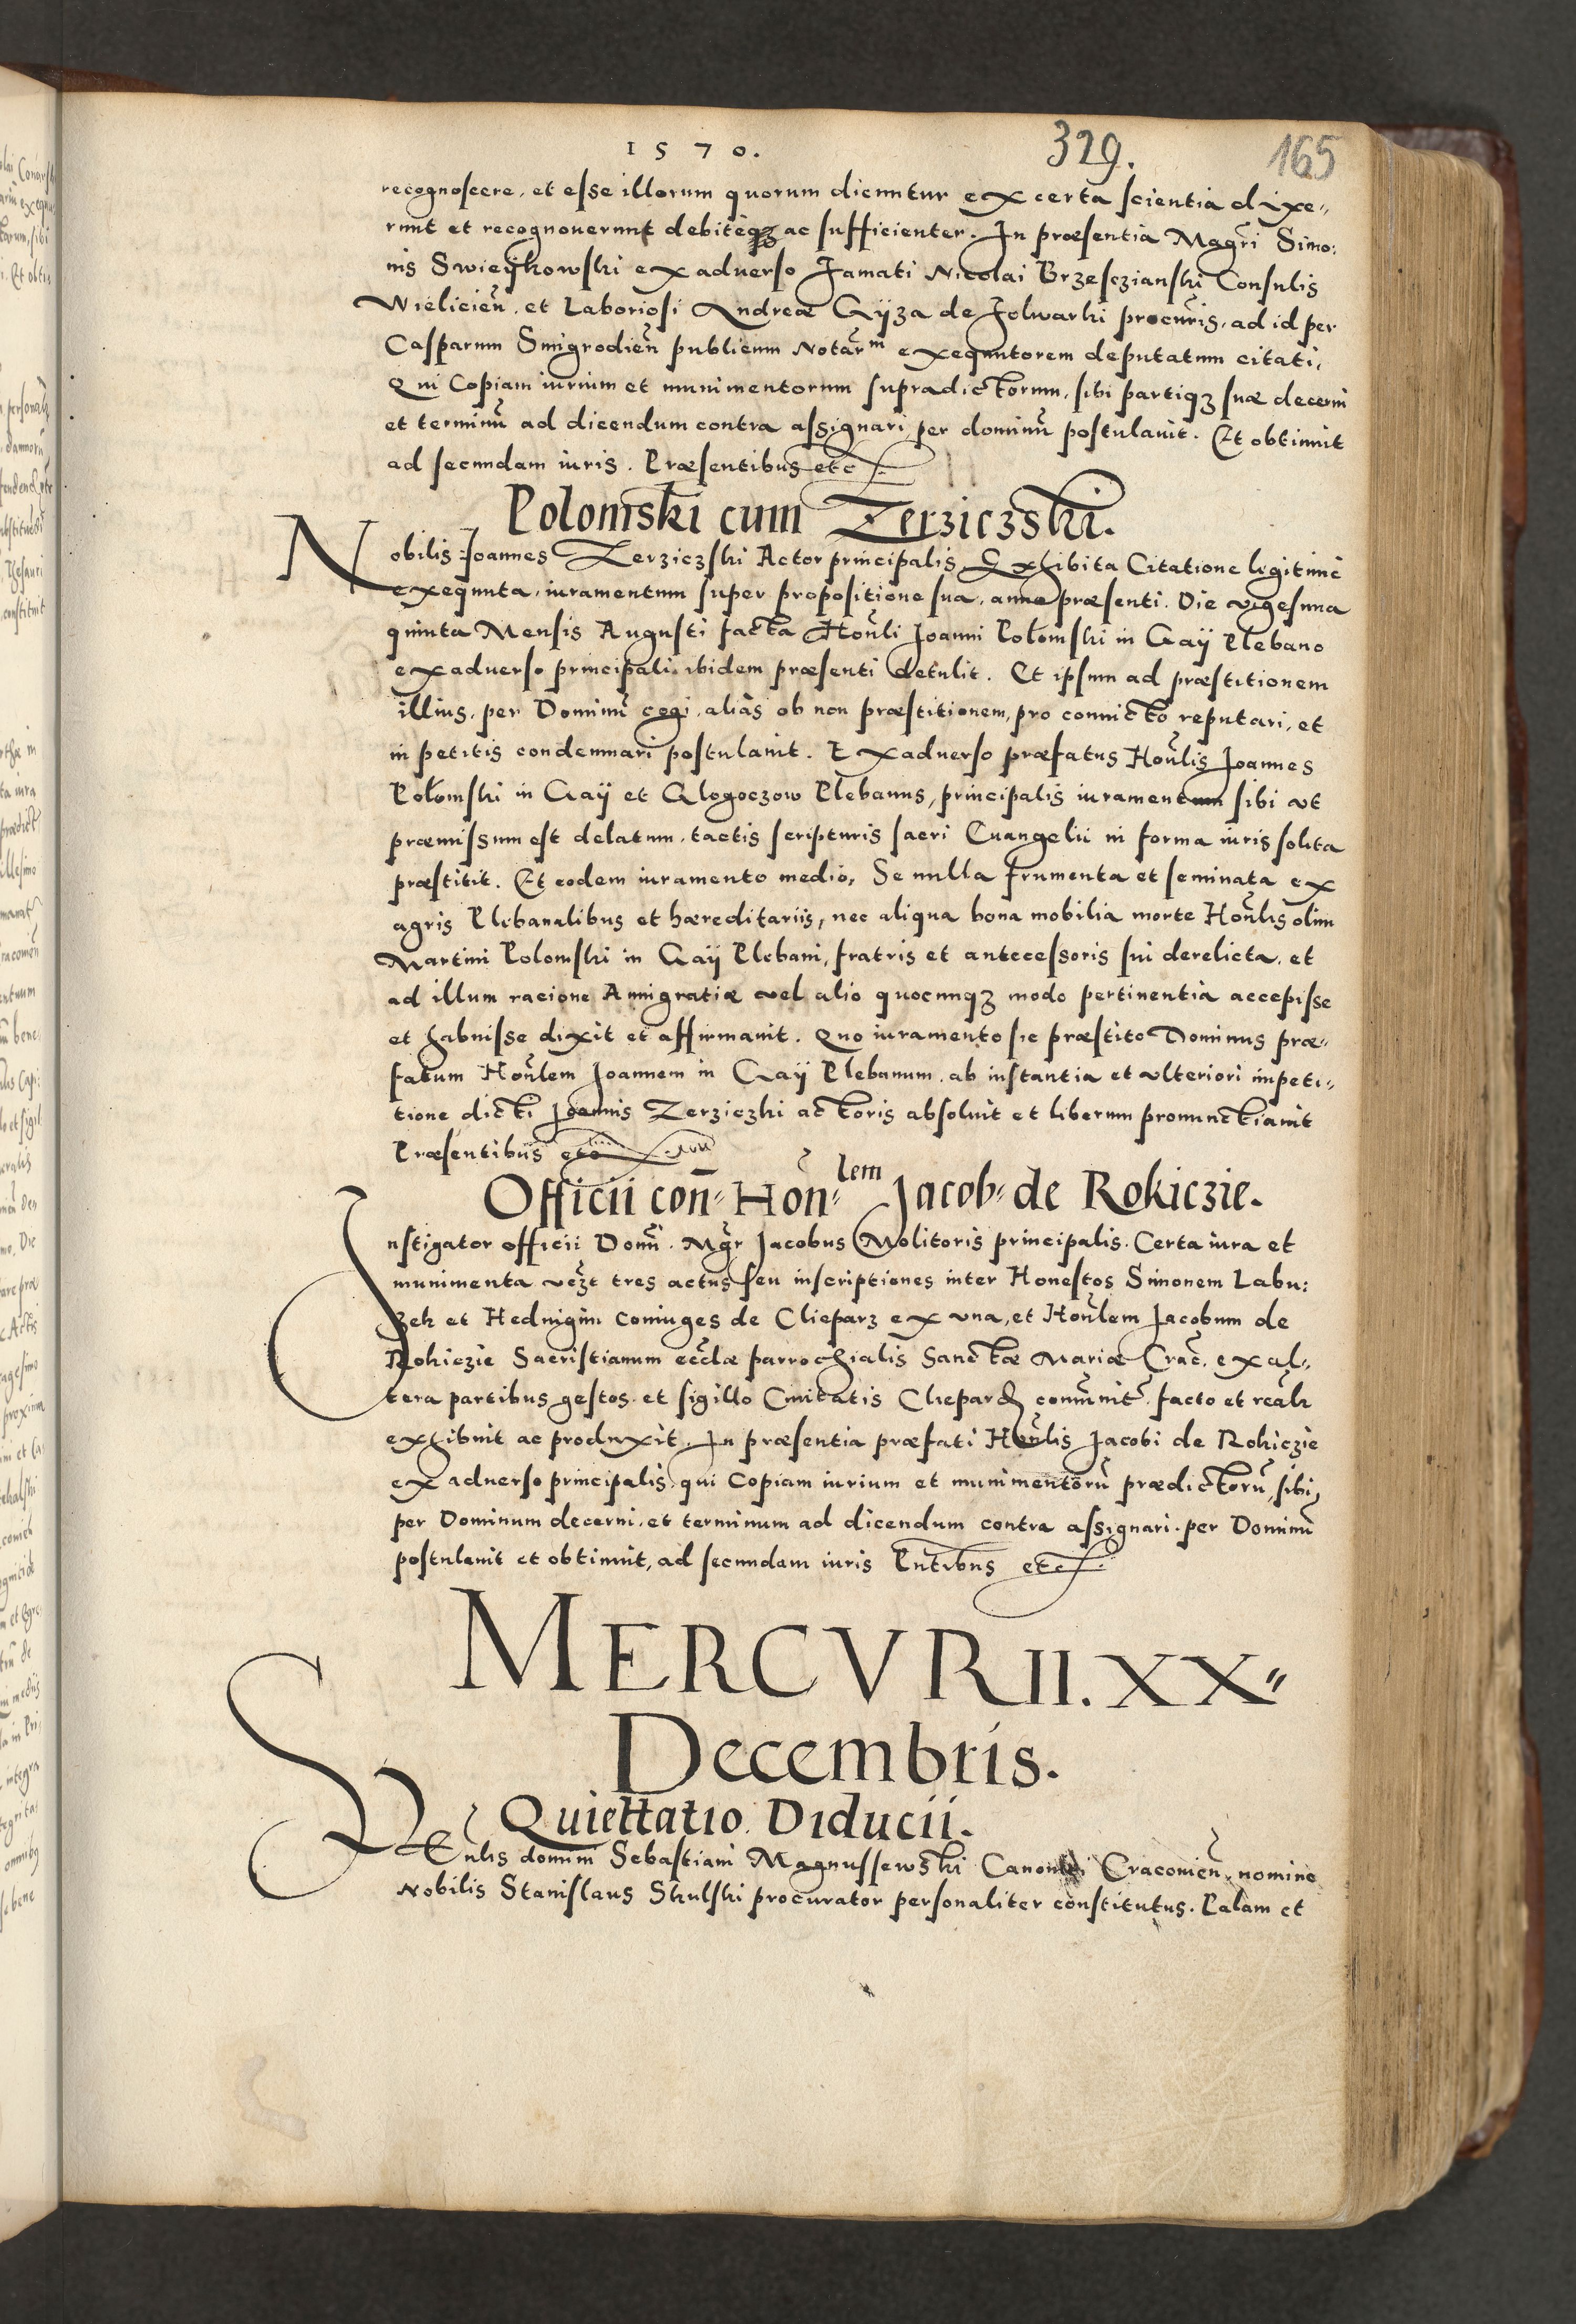 1570.
329.
165
recognoscere, et esse illorum quorum dicuntur ex certa scientia dixe„
runt et recognouerunt debiteqz ac sufficienter. In præsentia Magri Simo:
nis Swieÿkowski ex aduerso Famati Nicolai Brzesczianski Consulis
Wielicien̄. et Laboriosi Andreæ Gÿza de Folwarki procuris, ad id per
Casparum Smigrodien̄ publicum Notarm exequutorem deputatum citati,
Qui Copiam iurium et munimentorum supradictorum, sibi partiqz suæ decerni
et terminū ad dicendum contra assignari per dominū postulauit. Et obtinuit
ad secundam iuris. Præsentibus etc
Polomski cum Zerziczski.
Nobilis Joannes Zerziczski Actor principalis, Exhibita Citatione legitime
exequuta, iuramentum super propositione sua, anno præsenti. Die vigesima
quinta Mensis Augusti facta Honli Joanni Polomski in Gaÿ Plebano
ex aduerso principali ibidem præsenti detulit. Et ipsum ad præstitionem
illius, per Dominū cogi, alias ob non præstitionem, pro conuicto reputari, et
in petitis condemnari postulauit. Ex aduerso præfatus Honlis Joannes
Polomski in Gaÿ et Glogoczow Plebanus, principalis iuramentum sibi vt
præmissum est delatum, tactis scripturis sacri Euangelii in forma iuris solita
præstitit. Et eodem iuramento medio, Se nulla frumenta et seminata ex
agris Plebanalibus et hæreditariis, nec aliqua bona mobilia morte Honlis olim
Martini Polomski in Gaÿ Plebani, fratris et antecessoris sui derelicta, et
ad illum racione Amigratiæ vel alio quocunqz modo pertinentia accepisse
et habuisse dixit et affirmauit. Quo iuramento sic præstito Dominus præ„
fatum Honlem Joannem in Gaÿ Plebanum, ab instantia et vlteriori impeti„
tione dicti Joannis Zerziczki actoris absoluit et liberum pronunctiauit
Præsentibus etc
Officii con̄„ Hon̄„lem Jacob„ de Rokiczie.
Instigator officii Domī. Mgr Jacobus Molitoris principalis. Certa iura et
munimenta vczt tres actus seu inscriptiones inter Honestos Simonem Labu:
zek et Heduigim coniuges de Clieparz ex vna, et Honlem Jacobum de
Rokiczie Sacristianum eccłæ parrochialis Sanctæ Mariæ Crac̄. ex al„
tera partibus gestos et sigillo Ciuitatis Clepard communit̄ facto et realr
exhibuit ac produxit. In præsentia præfati Honlis Jacobi de Rokiczie
ex aduerso principalis, qui Copiam iurium et munimentorū prædictorū, sibi
per Dominum decerni, et terminum ad dicendum contra assignari per Dominū
postulauit et obtinuit, ad secundam iuris Pntibus etc
MERCVRII. XX„
Decembris.
Quiettatio Diducii.
REnlis domini Sebastiani Magnussewski Canonici Cracouien̄, nomine
Nobilis Stanislaus Skulski procurator personaliter constitutus. Palam et